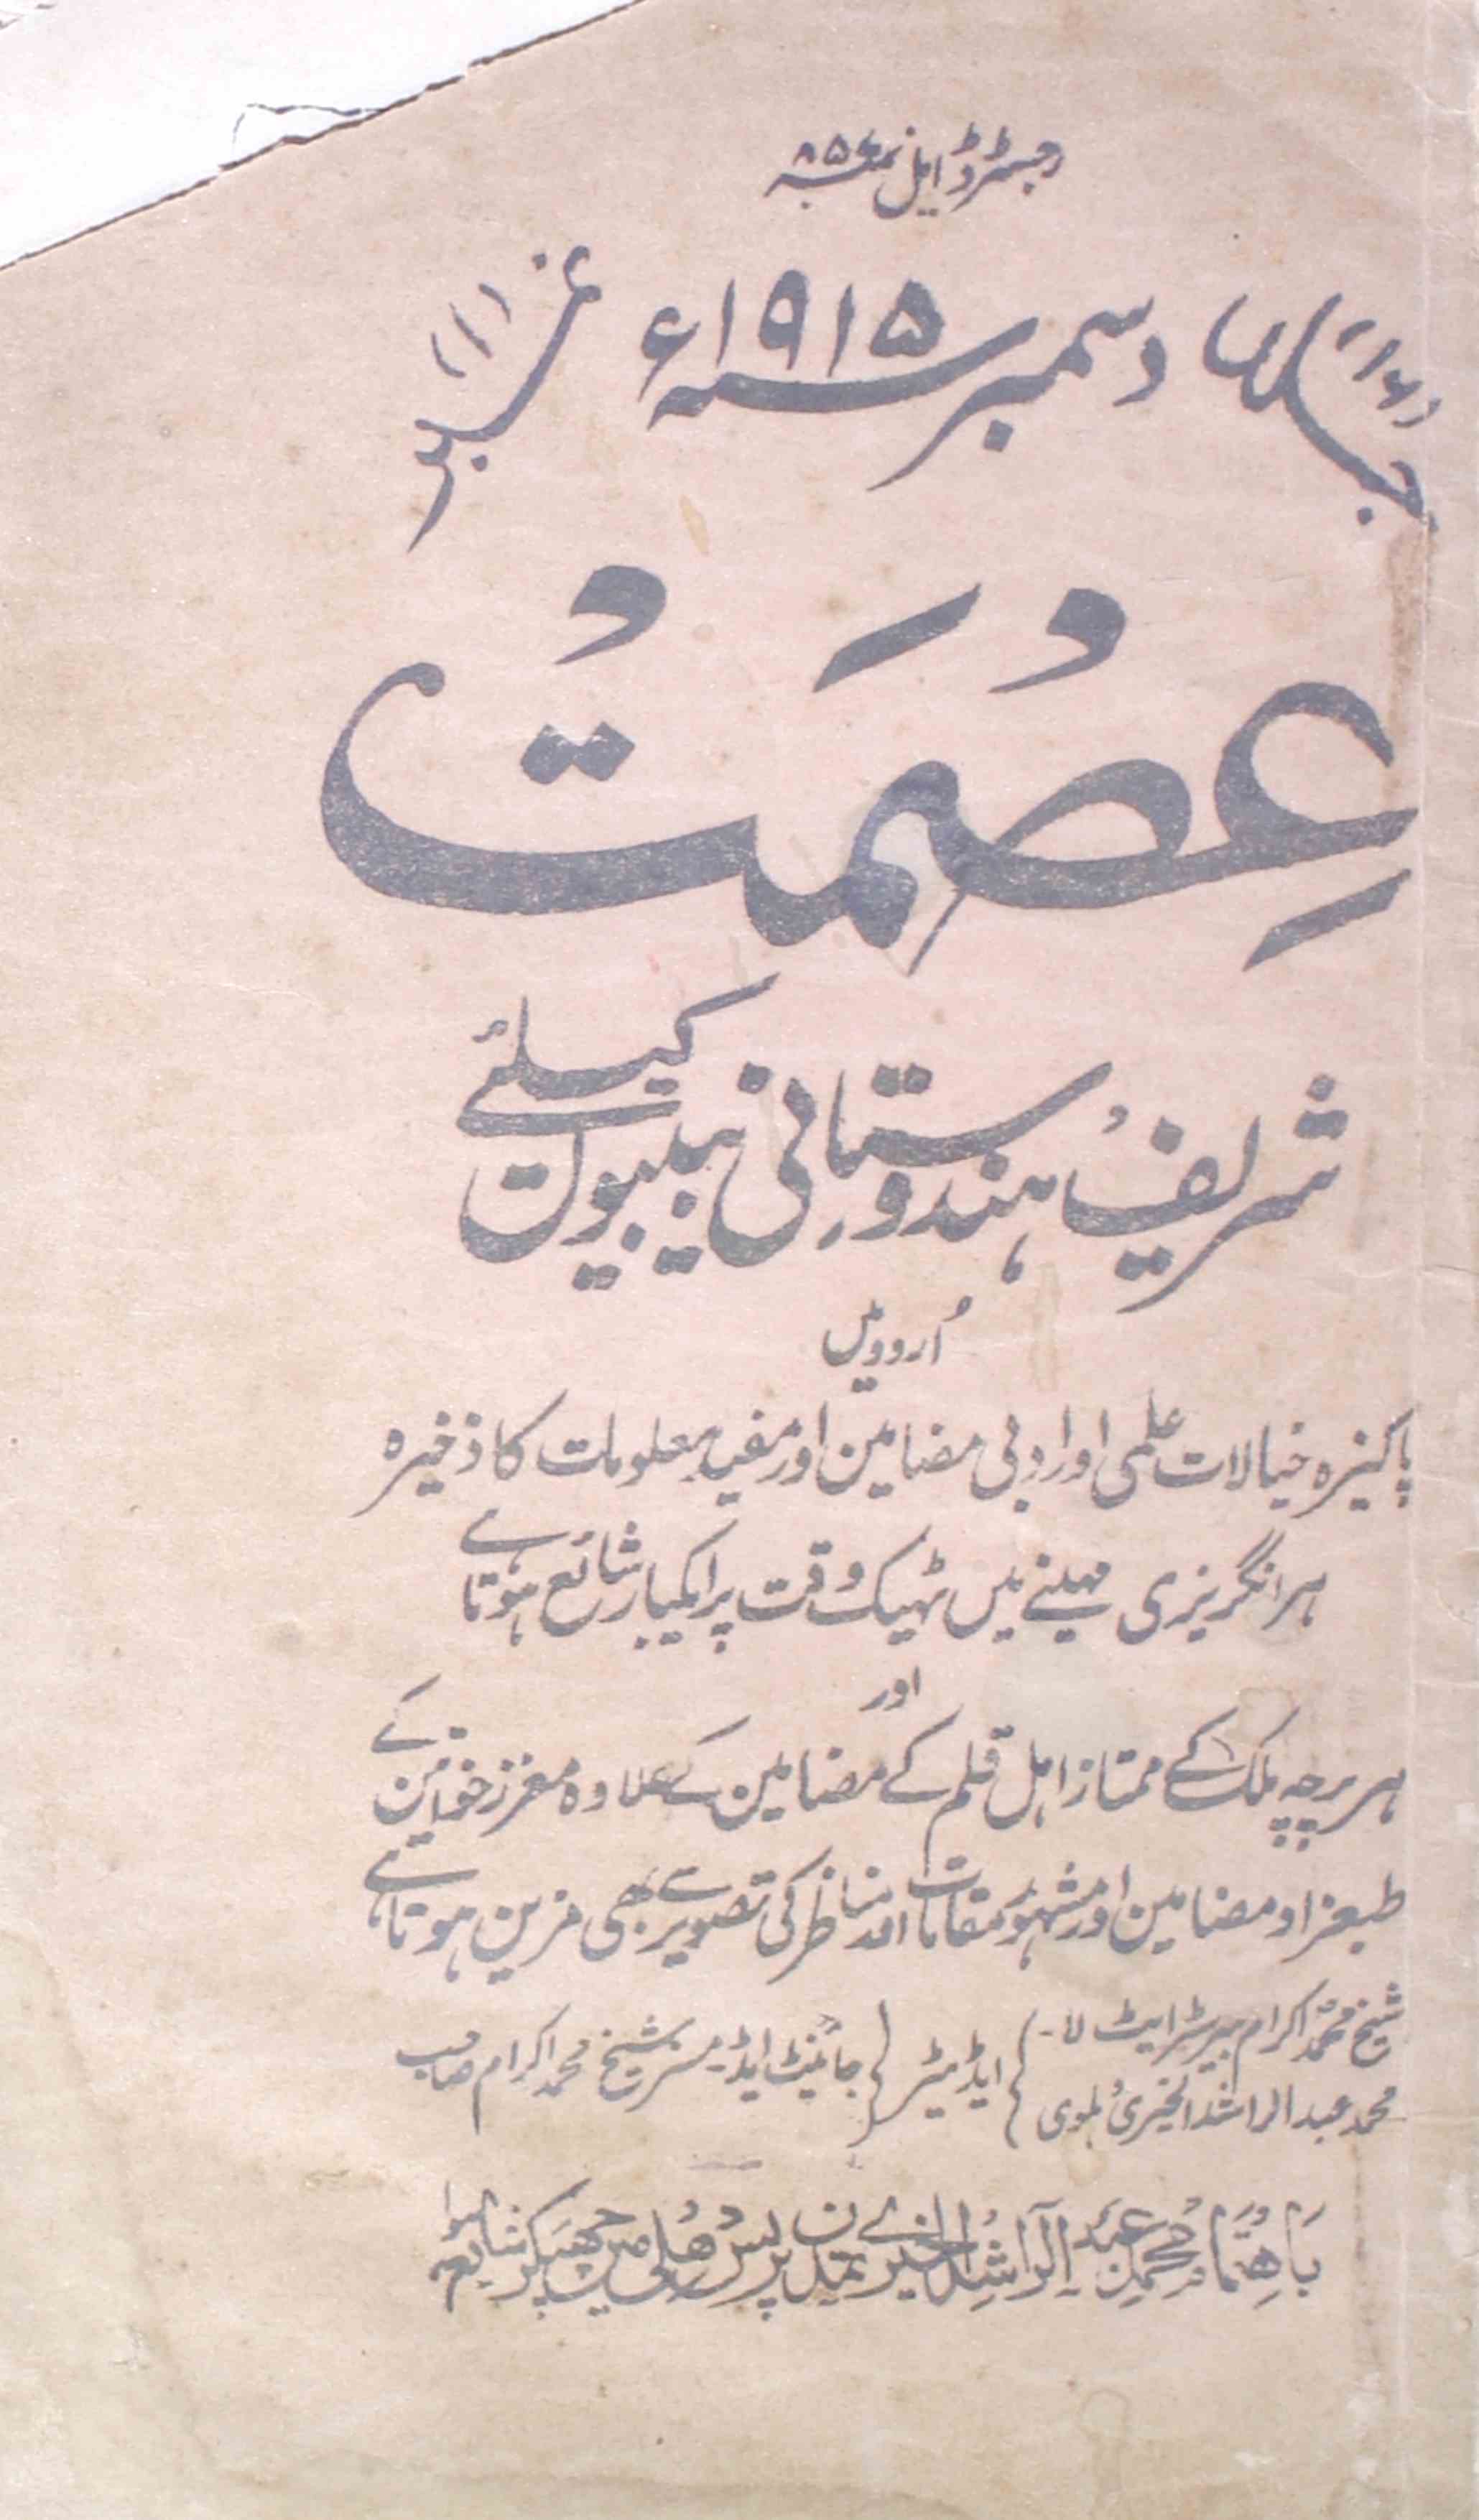 رجسٹرڈ ایل نمبر ۸۵۶
جلد دسمبر سنہ ۱۹۱۵ء نمبر
عِصْمَتْ
شریف ہندوستانی بیبیوں کیلئے
اُردو میں
پاکیزہ خیالات علمی اور ادبی مضامین اور مفید معلومات کا ذخیرہ
ہر انگریزی مہینے میں ٹہیک وقت پر ایکبار شائع ہوتا ہے
اور
ہر پرچہ ملک کے ممتاز اہل قلم کے مضامین کے علاوہ معزز خواتین کے
طبعزاد مضامین اور مشہور مقامات اور مناظر کی تصویر سے بھی مزین ہوتا ہے
شیخ محمد اکرام بیرسٹر ایٹ لا-
محمد عبدالراشد الخیری دہلوی
ایڈیٹر
جائنٹ ایڈیٹر مسز شیخ محمد اکرام صاحب
باہتمام محمد عبد الراشد الخیری پریس دہلی میں چھپکر شایع ہوا